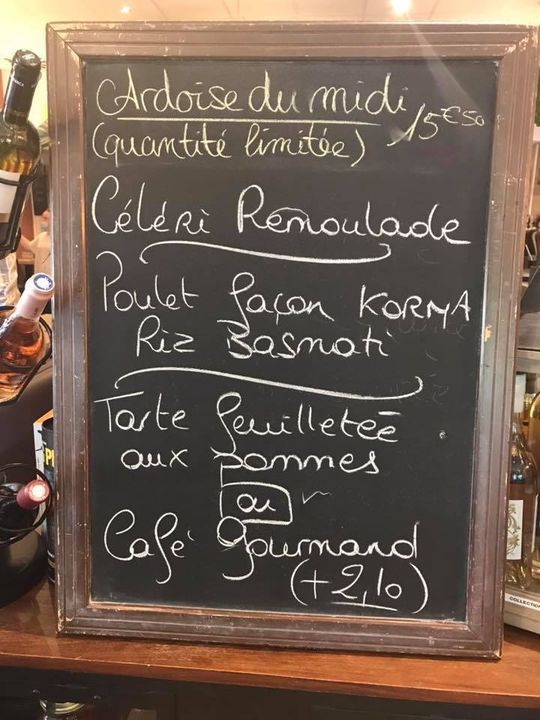 Ardoise du midi 15€50
(quantité limitée)
Céléri Rémoulade
Poulet façon KORMA
Riz Basmati
Tarte feuilletée
aux pommes
ou
Café gourmand
(+2,10)
COLLECTION